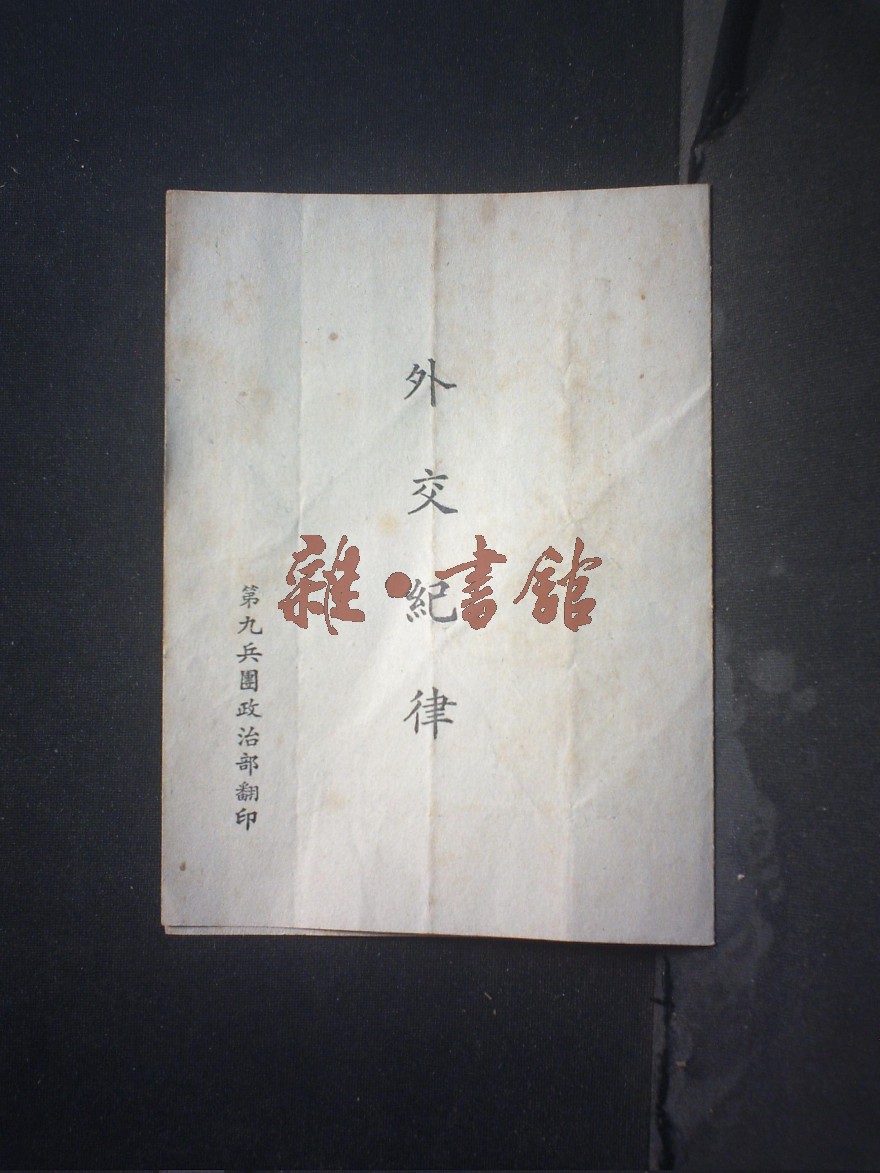 外交紀律
第九兵團政治部翻印
雜·書館